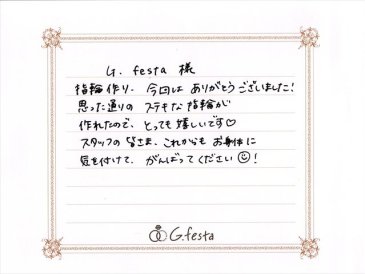 G. festa 様
指輪作り、今回は ありがとうございました!
思った通りの ステキな指輪が
作れたので、とっても嬉しいです♡
スタッフの皆さま、これからも お身体に
気を付けて、がんばってください☺!
G.festa